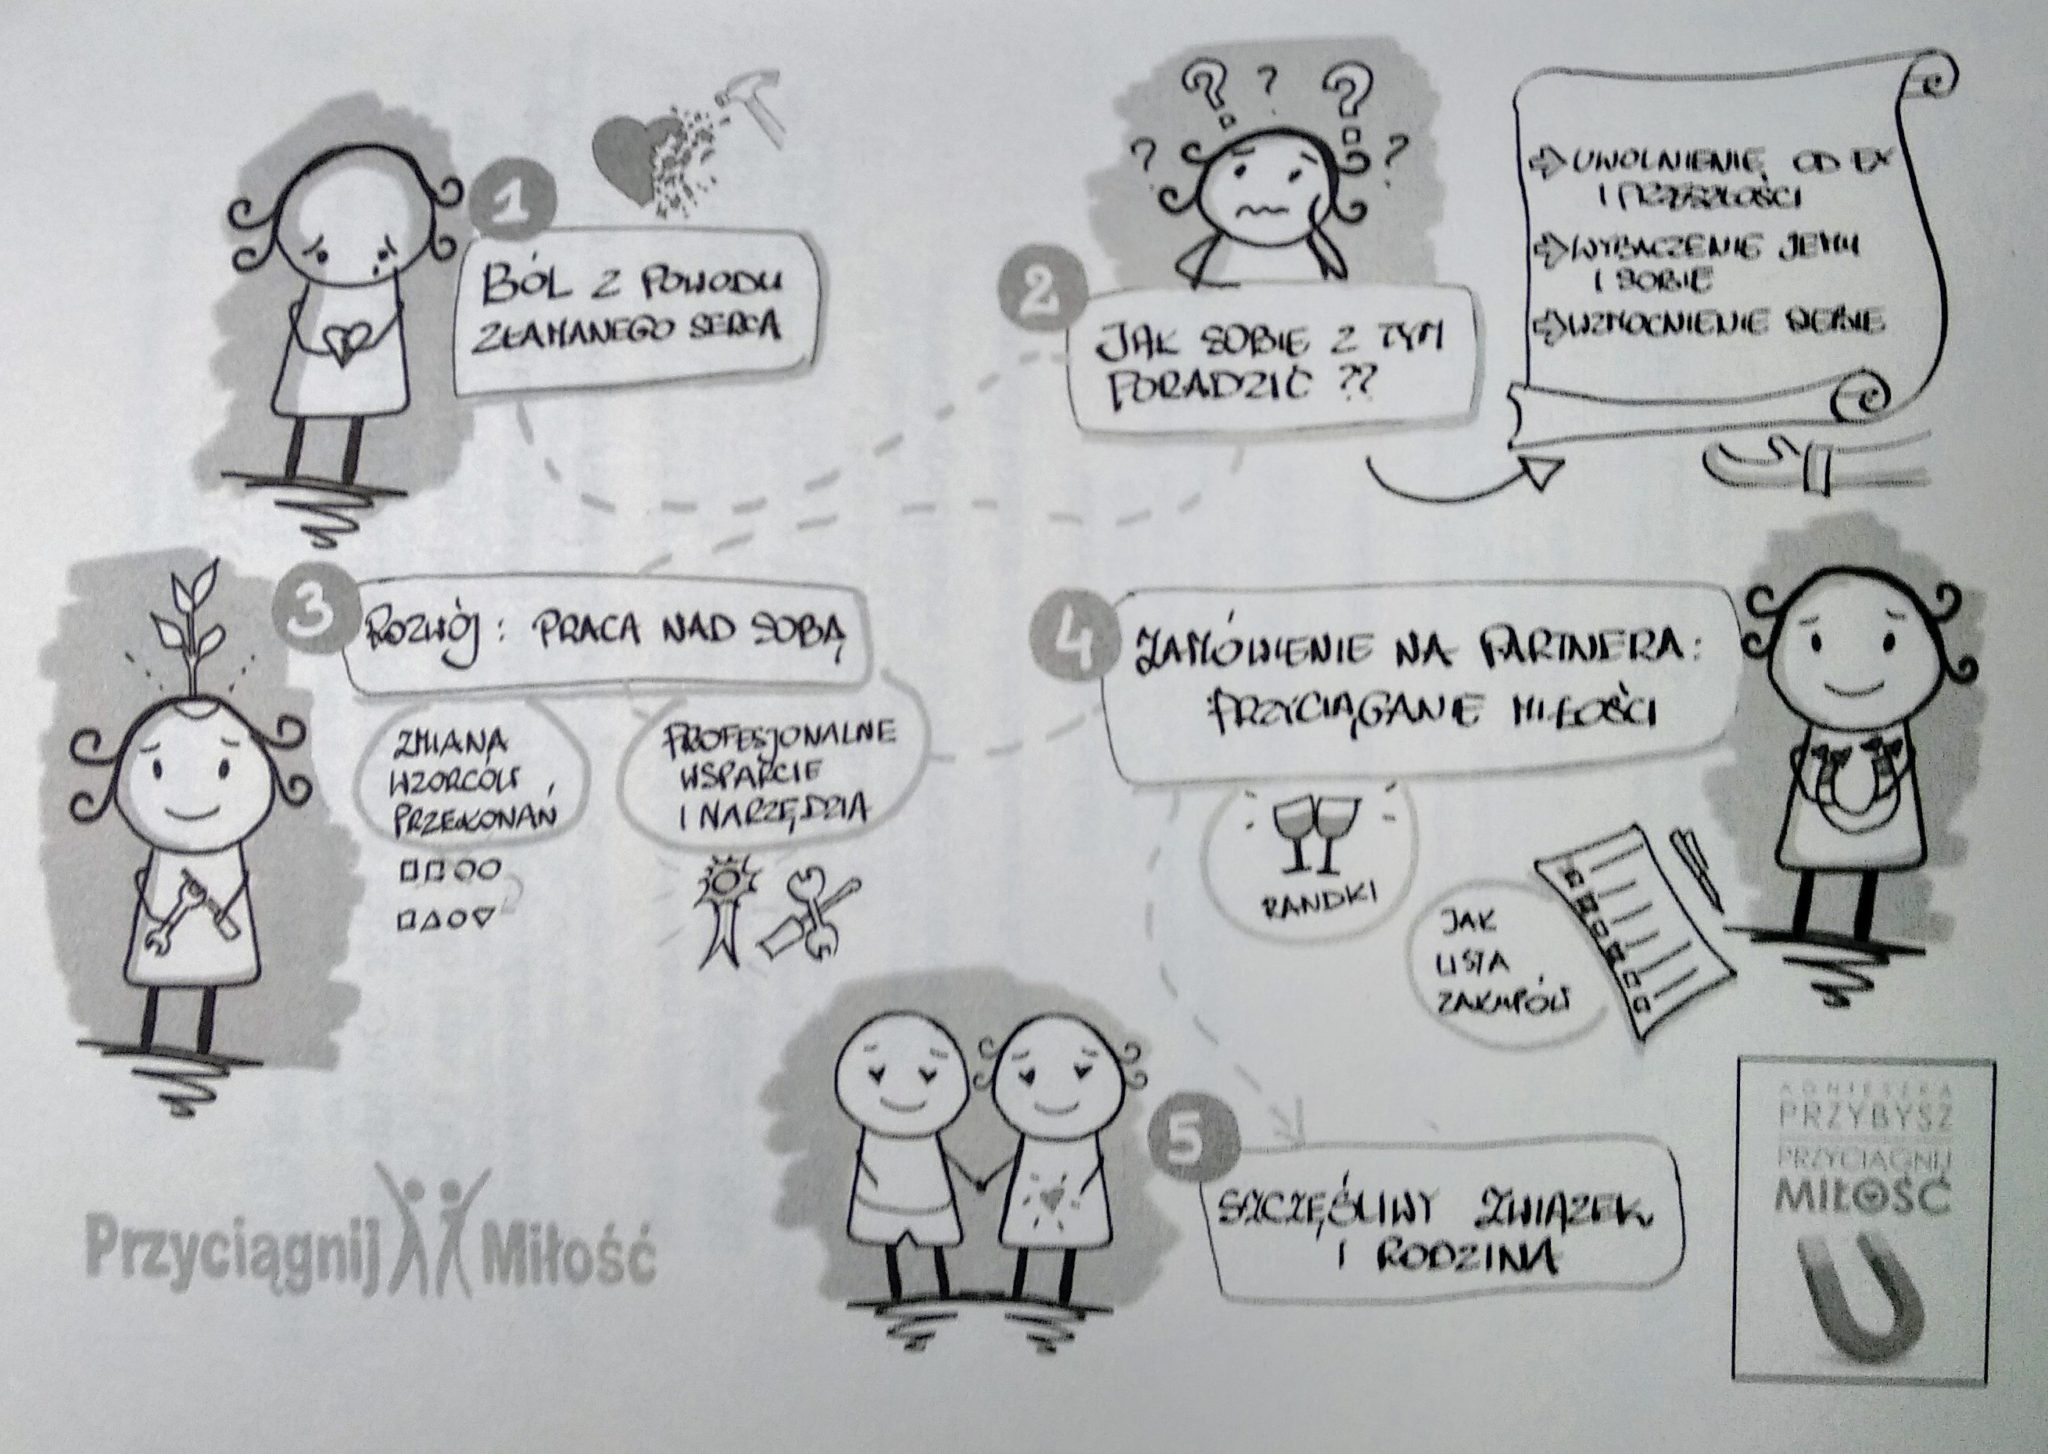 1
BÓL Z POWODU
ZŁAMANEGO SERCA
? ? ? ? ?
2
JAK SOBIE Z TYM
PORADZIĆ ??
UWOLNIENIE OD EX
I PRZESZŁOŚCI
WYBACZENIE JEMU
I SOBIE
WZMOCNIENIE SIEBIE
3
ROZWÓJ: PRACA NAD SOBĄ
ZMIANA
WZORCÓW,
PRZEKONAŃ
PROFESJONALNE
WSPARCIE
I NARZĘDZIA
4
ZAMÓWIENIE NA PARTNERA:
PRZYCIĄGANIE MIŁOŚCI
RANDKI
JAK
LISTA
ZAKUPÓW
5
SZCZĘŚLIWY ZWIĄZEK
I RODZINA
Przyciągnij Miłość
AGNIESZKA
PRZYBYSZ
PRZYCIĄGNIJ
MIŁOŚĆ